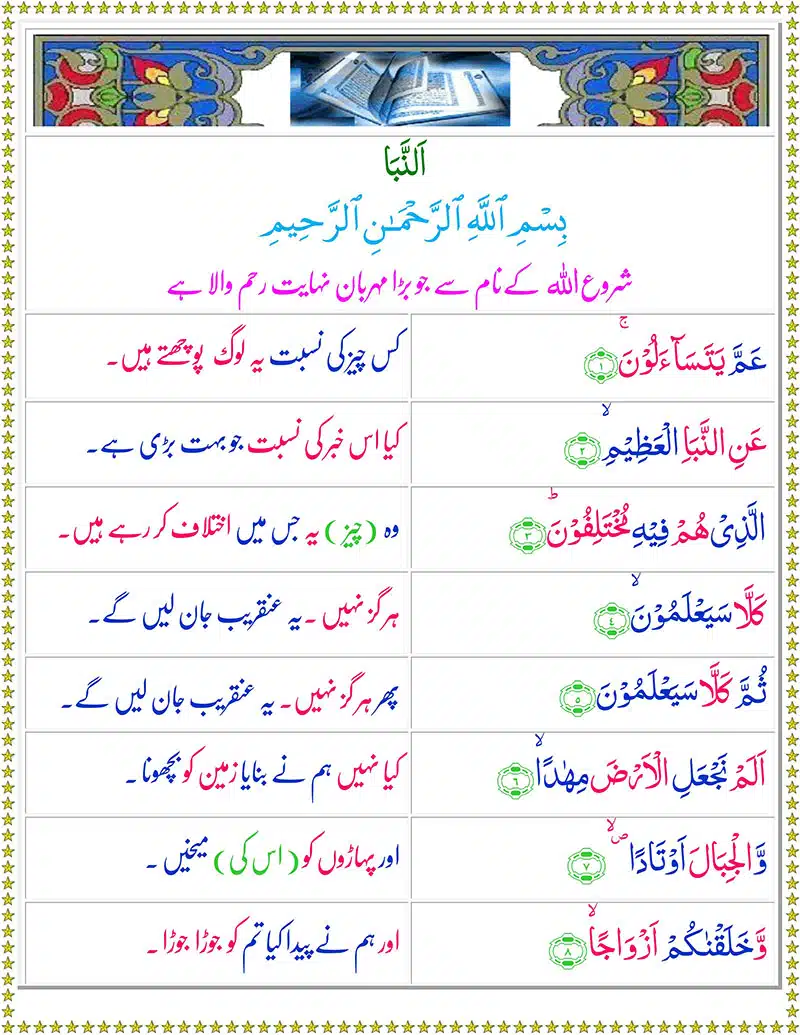 اَلنَّبَا
بِسْمِ ٱللَّهِ ٱلرَّحْمَـٰنِ ٱلرَّحِيمِ
شروع اللہ کے نام سے جو بڑا مہربان نہایت رحم والا ہے
عَمَّ یَتَسَآءَلُوْنَۚ ۝۱ کس چیز کی نسبت یہ لوگ پوچھتے ہیں۔
عَنِ النَّبَاِ الْعَظِیْمِۙ ۝۲ کیا اس خبر کی نسبت جو بہت بڑی ہے۔
الَّذِیْ هُمْ فِیْهِ مُخْتَلِفُوْنَؕ ۝۳ وہ (چیز) یہ جس میں اختلاف کر رہے ہیں۔
كَلَّا سَیَعْلَمُوْنَۙ ۝٤ ہرگز نہیں۔ یہ عنقریب جان لیں گے۔
ثُمَّ كَلَّا سَیَعْلَمُوْنَ ۝٥ پھر ہرگز نہیں۔ یہ عنقریب جان لیں گے۔
اَلَمْ نَجْعَلِ الْاَرْضَ مِهٰدًاۙ ۝٦ کیا نہیں ہم نے بنایا زمین کو بچھونا۔
وَّ الْجِبَالَ اَوْتَادًاﭪۙ ۝۷ اور پہاڑوں کو (اس کی) میخیں۔
وَّ خَلَقْنٰكُمْ اَزْوَاجًاۙ ۝۸ اور ہم نے پیدا کیا تم کو جوڑا جوڑا۔